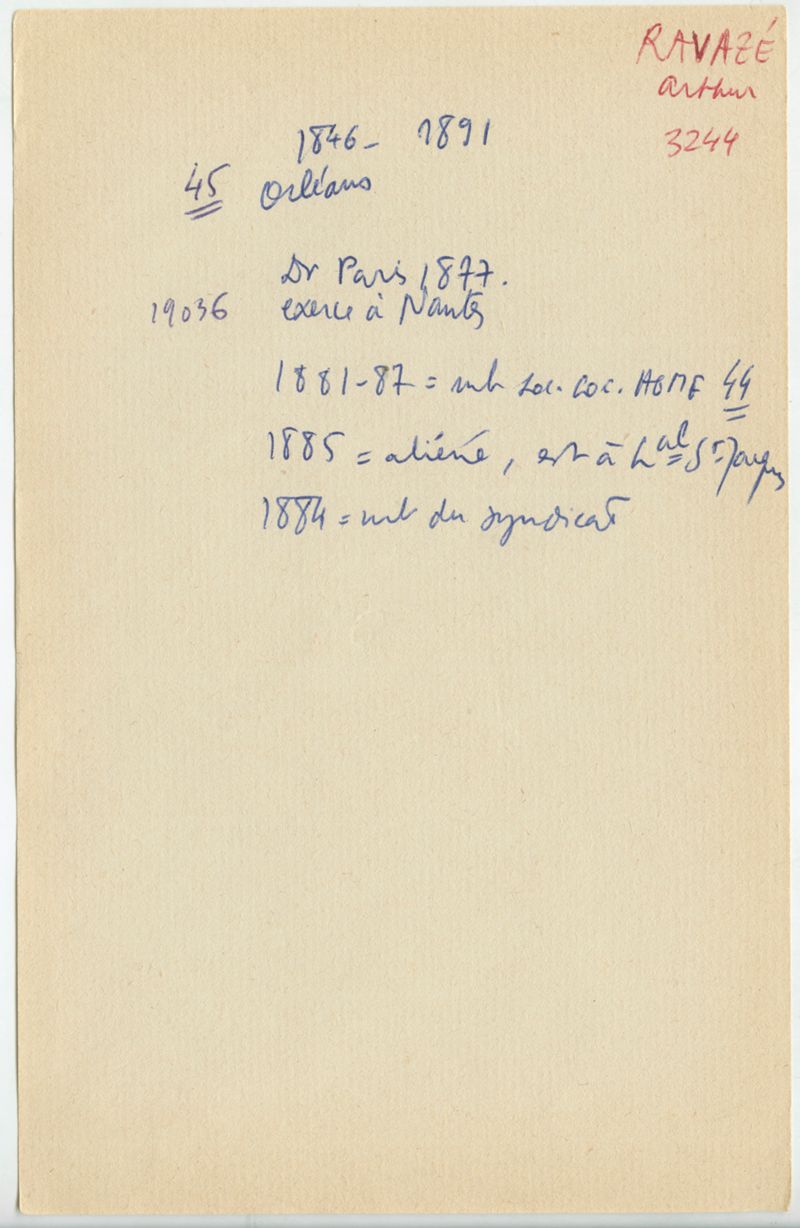 RAVAZÉ
Arthur
3244
1846- 1891
45 Orléans
Dr Paris 1877.
19036 exerce à Nantes
1881-87 = mb Soc. loc. AGMF 44
1885 = aliéné, est à L'al = St-Jacques
1884 = mb du syndicat